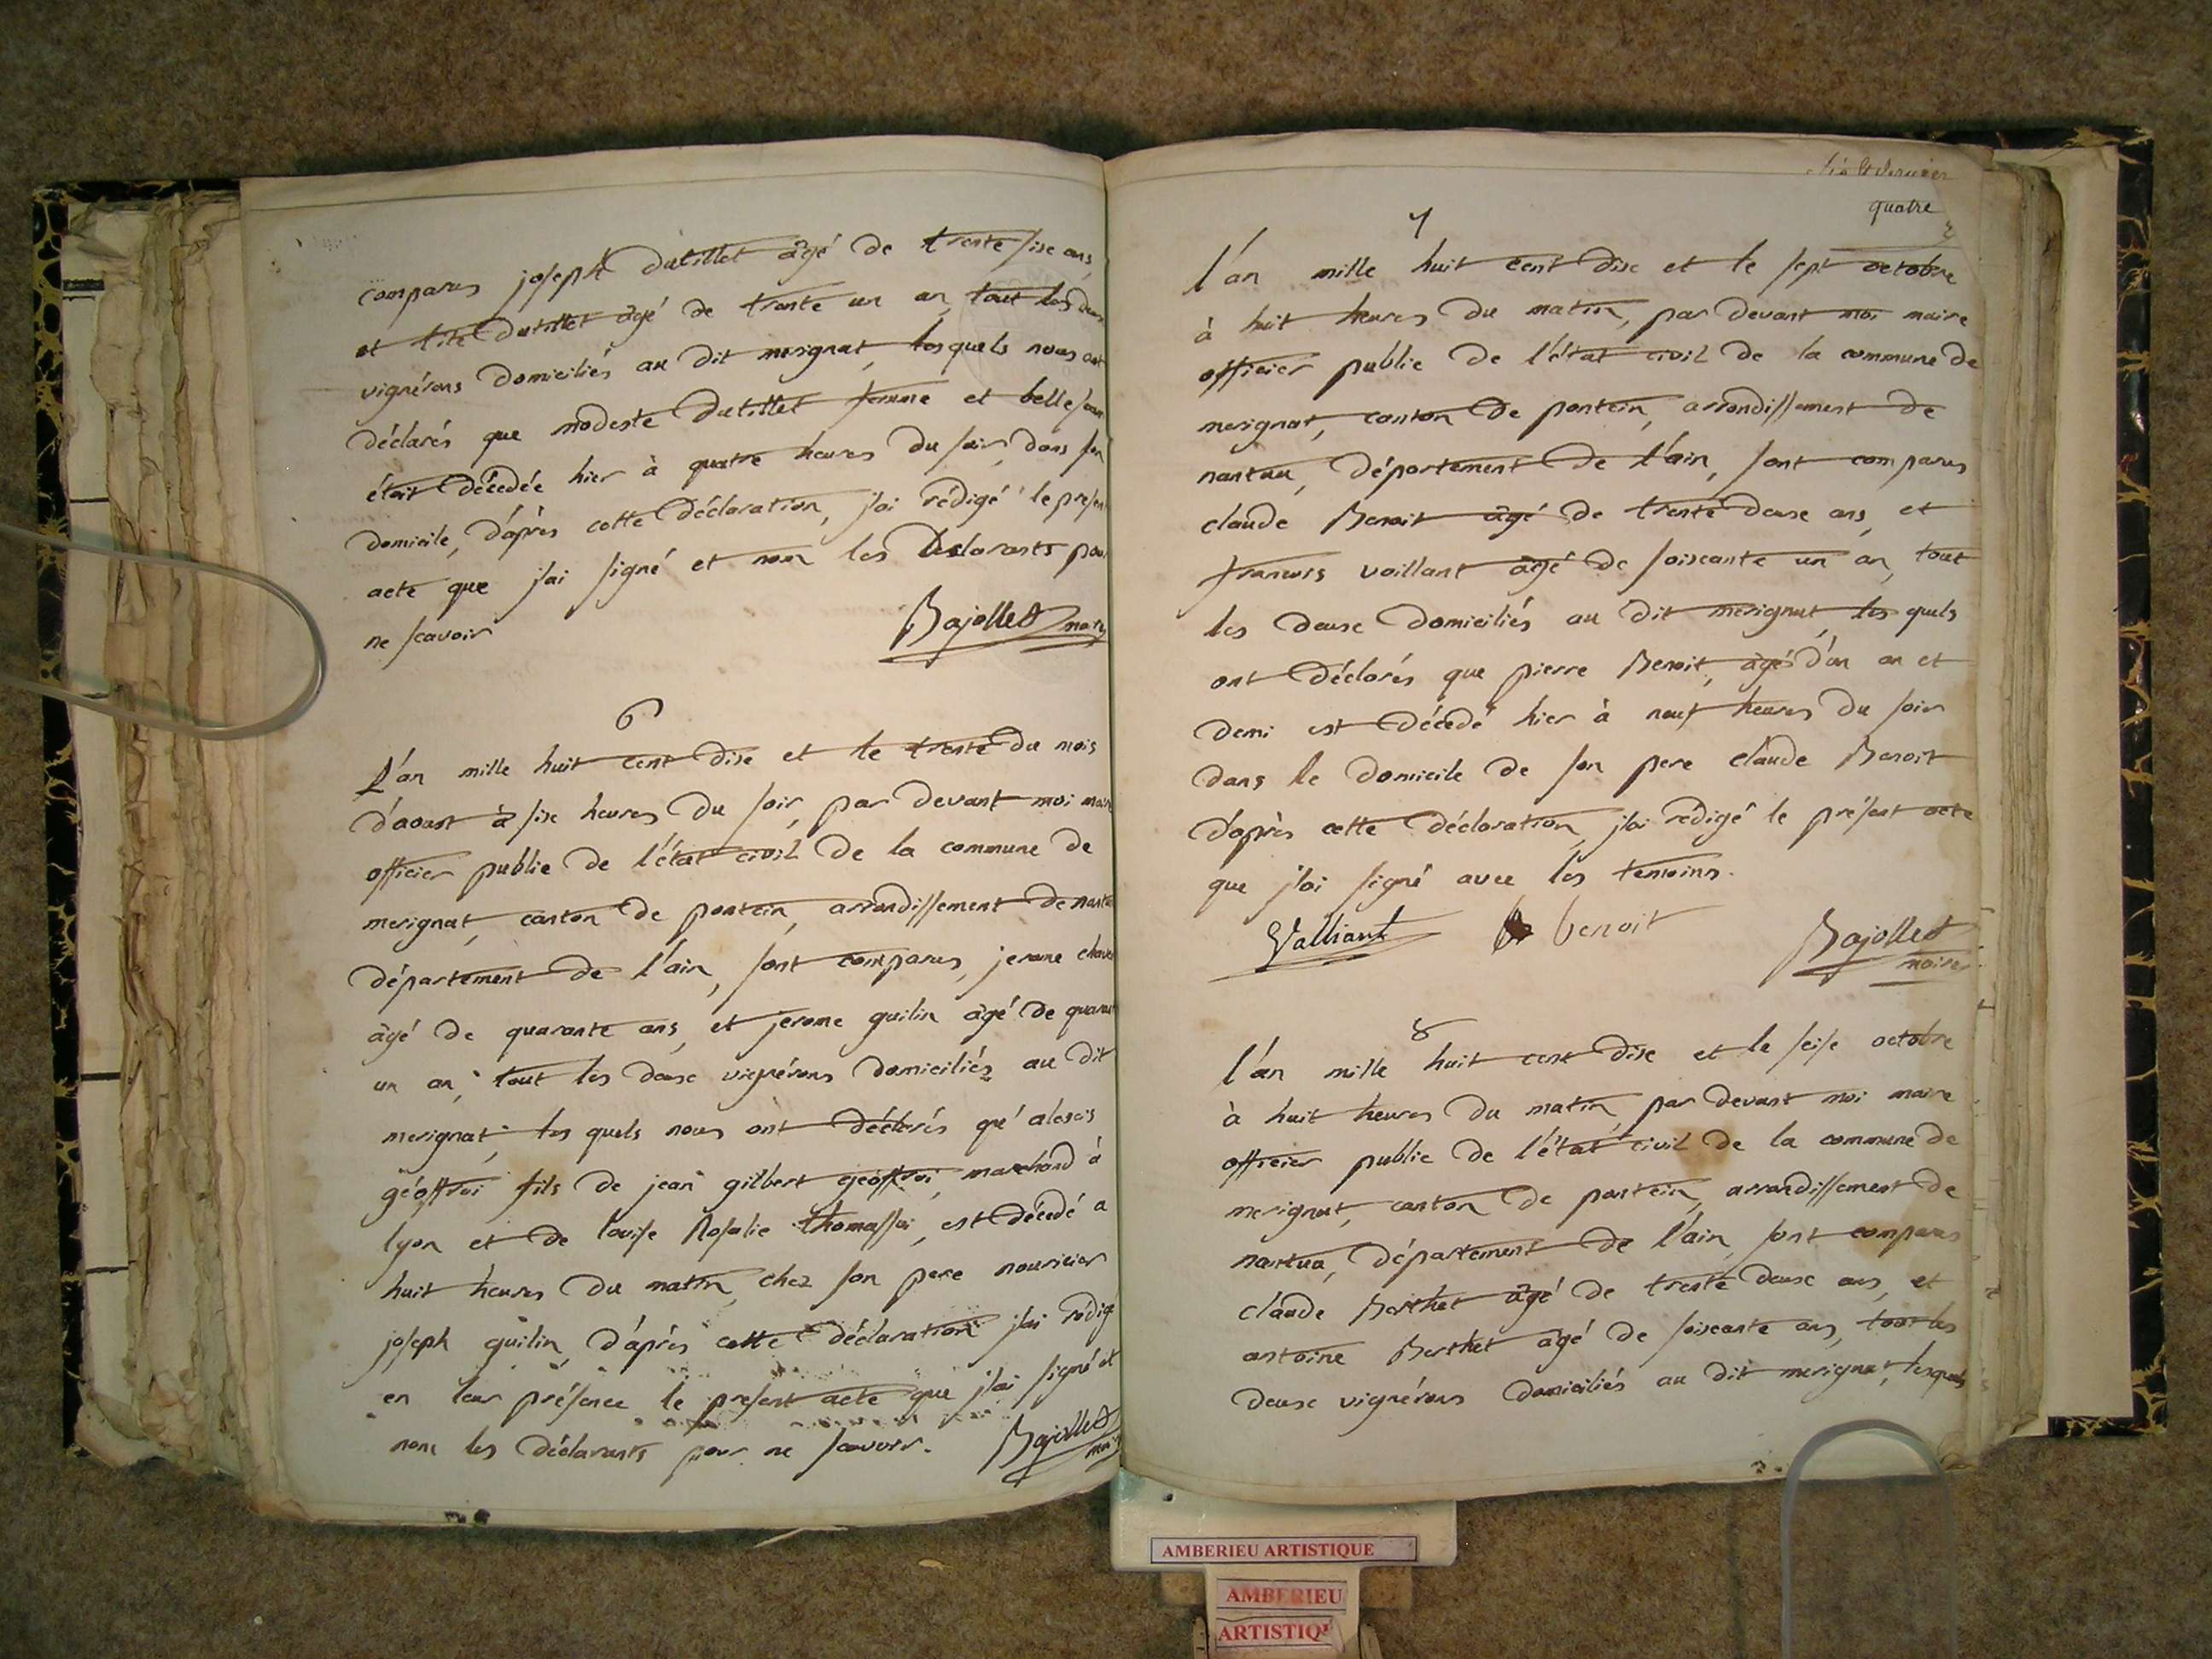 comparus joseph dutillet âgé de trente sise ans,
et tité dutillet âgé de trante un an, tout les deux
vignérons domiciliés au dit merignat, les quels nous ont
déclarés que modeste dutillet femme et belle sœur
était décedée hier à quatre heures du soir, dans son
domicile, d'après cette déclaration, j'ai rédigé le present
acte que j'ai signé et non les déclarants pour
ne scavoir Bajollet maire
6
L'an mille huit cent dise et le trente du mois
d'aoust à sise heures du soir, par devant moi maire
officier public de l'état civil de la commune de
merignat, canton de poncin, arrondissement de nantua
département de l'ain, sont comparus, jerome
âgé de quarante ans, et jerome guilin âgé de quarante
un an, tout les deuse vignérons domiciliés au dit
merignat, les quels nous ont déclarés qu'alescis
géoffroi fils de jean gilbert géoffroi, marchand à
lyon et de louise Rosalie thomassin, est décedé a
huit heures du matin, chez son pere nouricier
joseph guilin, d'après cette déclaration j'ai rédigé
en leur présence le present acte que j'ai signé et
nonc les déclarants pour ne scavoir. Bajollet
maire
quatre
7
l'an mille huit cent dise et le sept octobre
à huit heures du matin, par devant moi maire
officier public de l'état civil de la commune de
merignat, canton de poncin, arrondissement de
nantua, département de l'ain, sont comparus
claude Benoit âgé de trente deuse ans, et
francois vaillant âgé de soiscante un an, tout
les deuse domiciliés au dit merignat, les quels
ont déclarés que pierre Benoit, âgé d'un an et
demi est décedé hier à neuf heures du soir
dans le domicile de son pere claude Benoit
d'après cette déclaration, j'ai rédigé le présent acte
que j'ai signé avec les temoins.
Valliant benoit Bajollet
maire
8
l'an mille huit cent dise et le seise octobre
à huit heures du matin, par devant moi maire
officier public de l'état civil de la commune de
merignat, canton de poncin, arrondissement de
nantua, département de l'ain, sont comparus
claude Berthet âgé de trente deuse ans, et
antoine Berthet âgé de soiscante ans, tout les
deuse vignérons domiciliés au dit merignat, lesquels
AMBERIEU ARTISTIQUE
AMBERIEU
ARTISTIQU